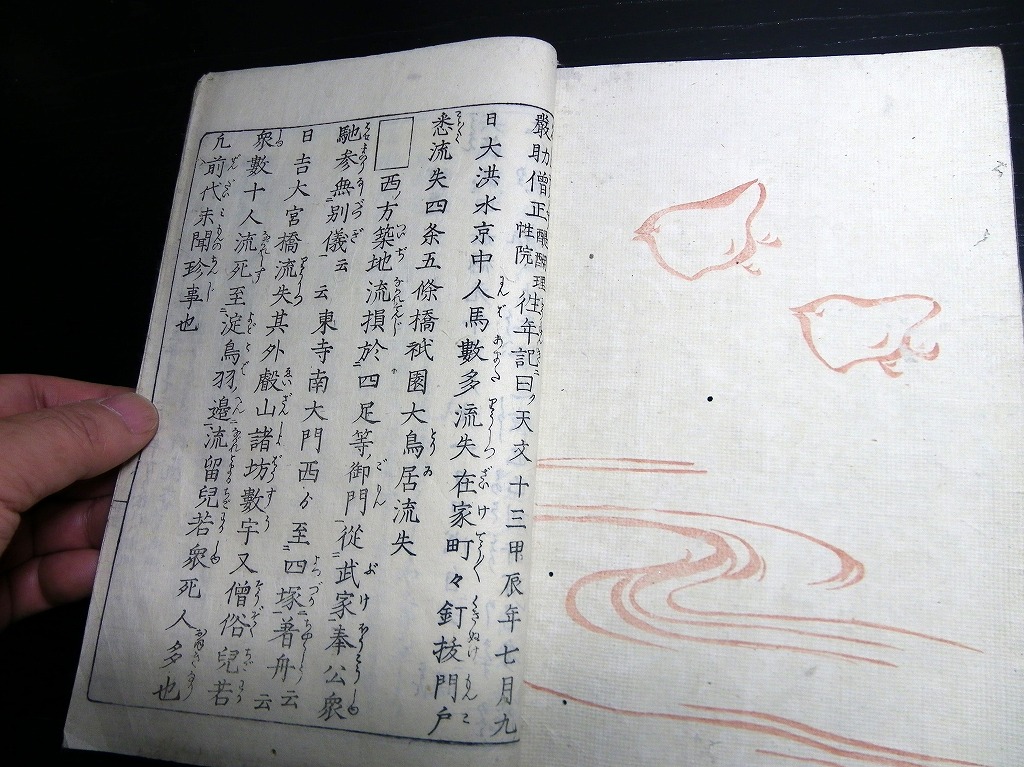 嚴助僧正醍醐理性院往年記曰天文十三甲辰年七月九
日大洪水京中人馬數多流失在家町々釘抜門戸
悉流失四条五條橋祇園大鳥居流失
西ノ方築地流損於四足等御門從武家奉公衆
馳参無別儀云云東寺南大門西ゟ至四塚著舟云云
日吉大宮橋流失其外叡山諸坊數宇又僧俗兒若
衆數十人流死至淀鳥羽邊流留兒若衆死人多也
凡前代未聞珍事也